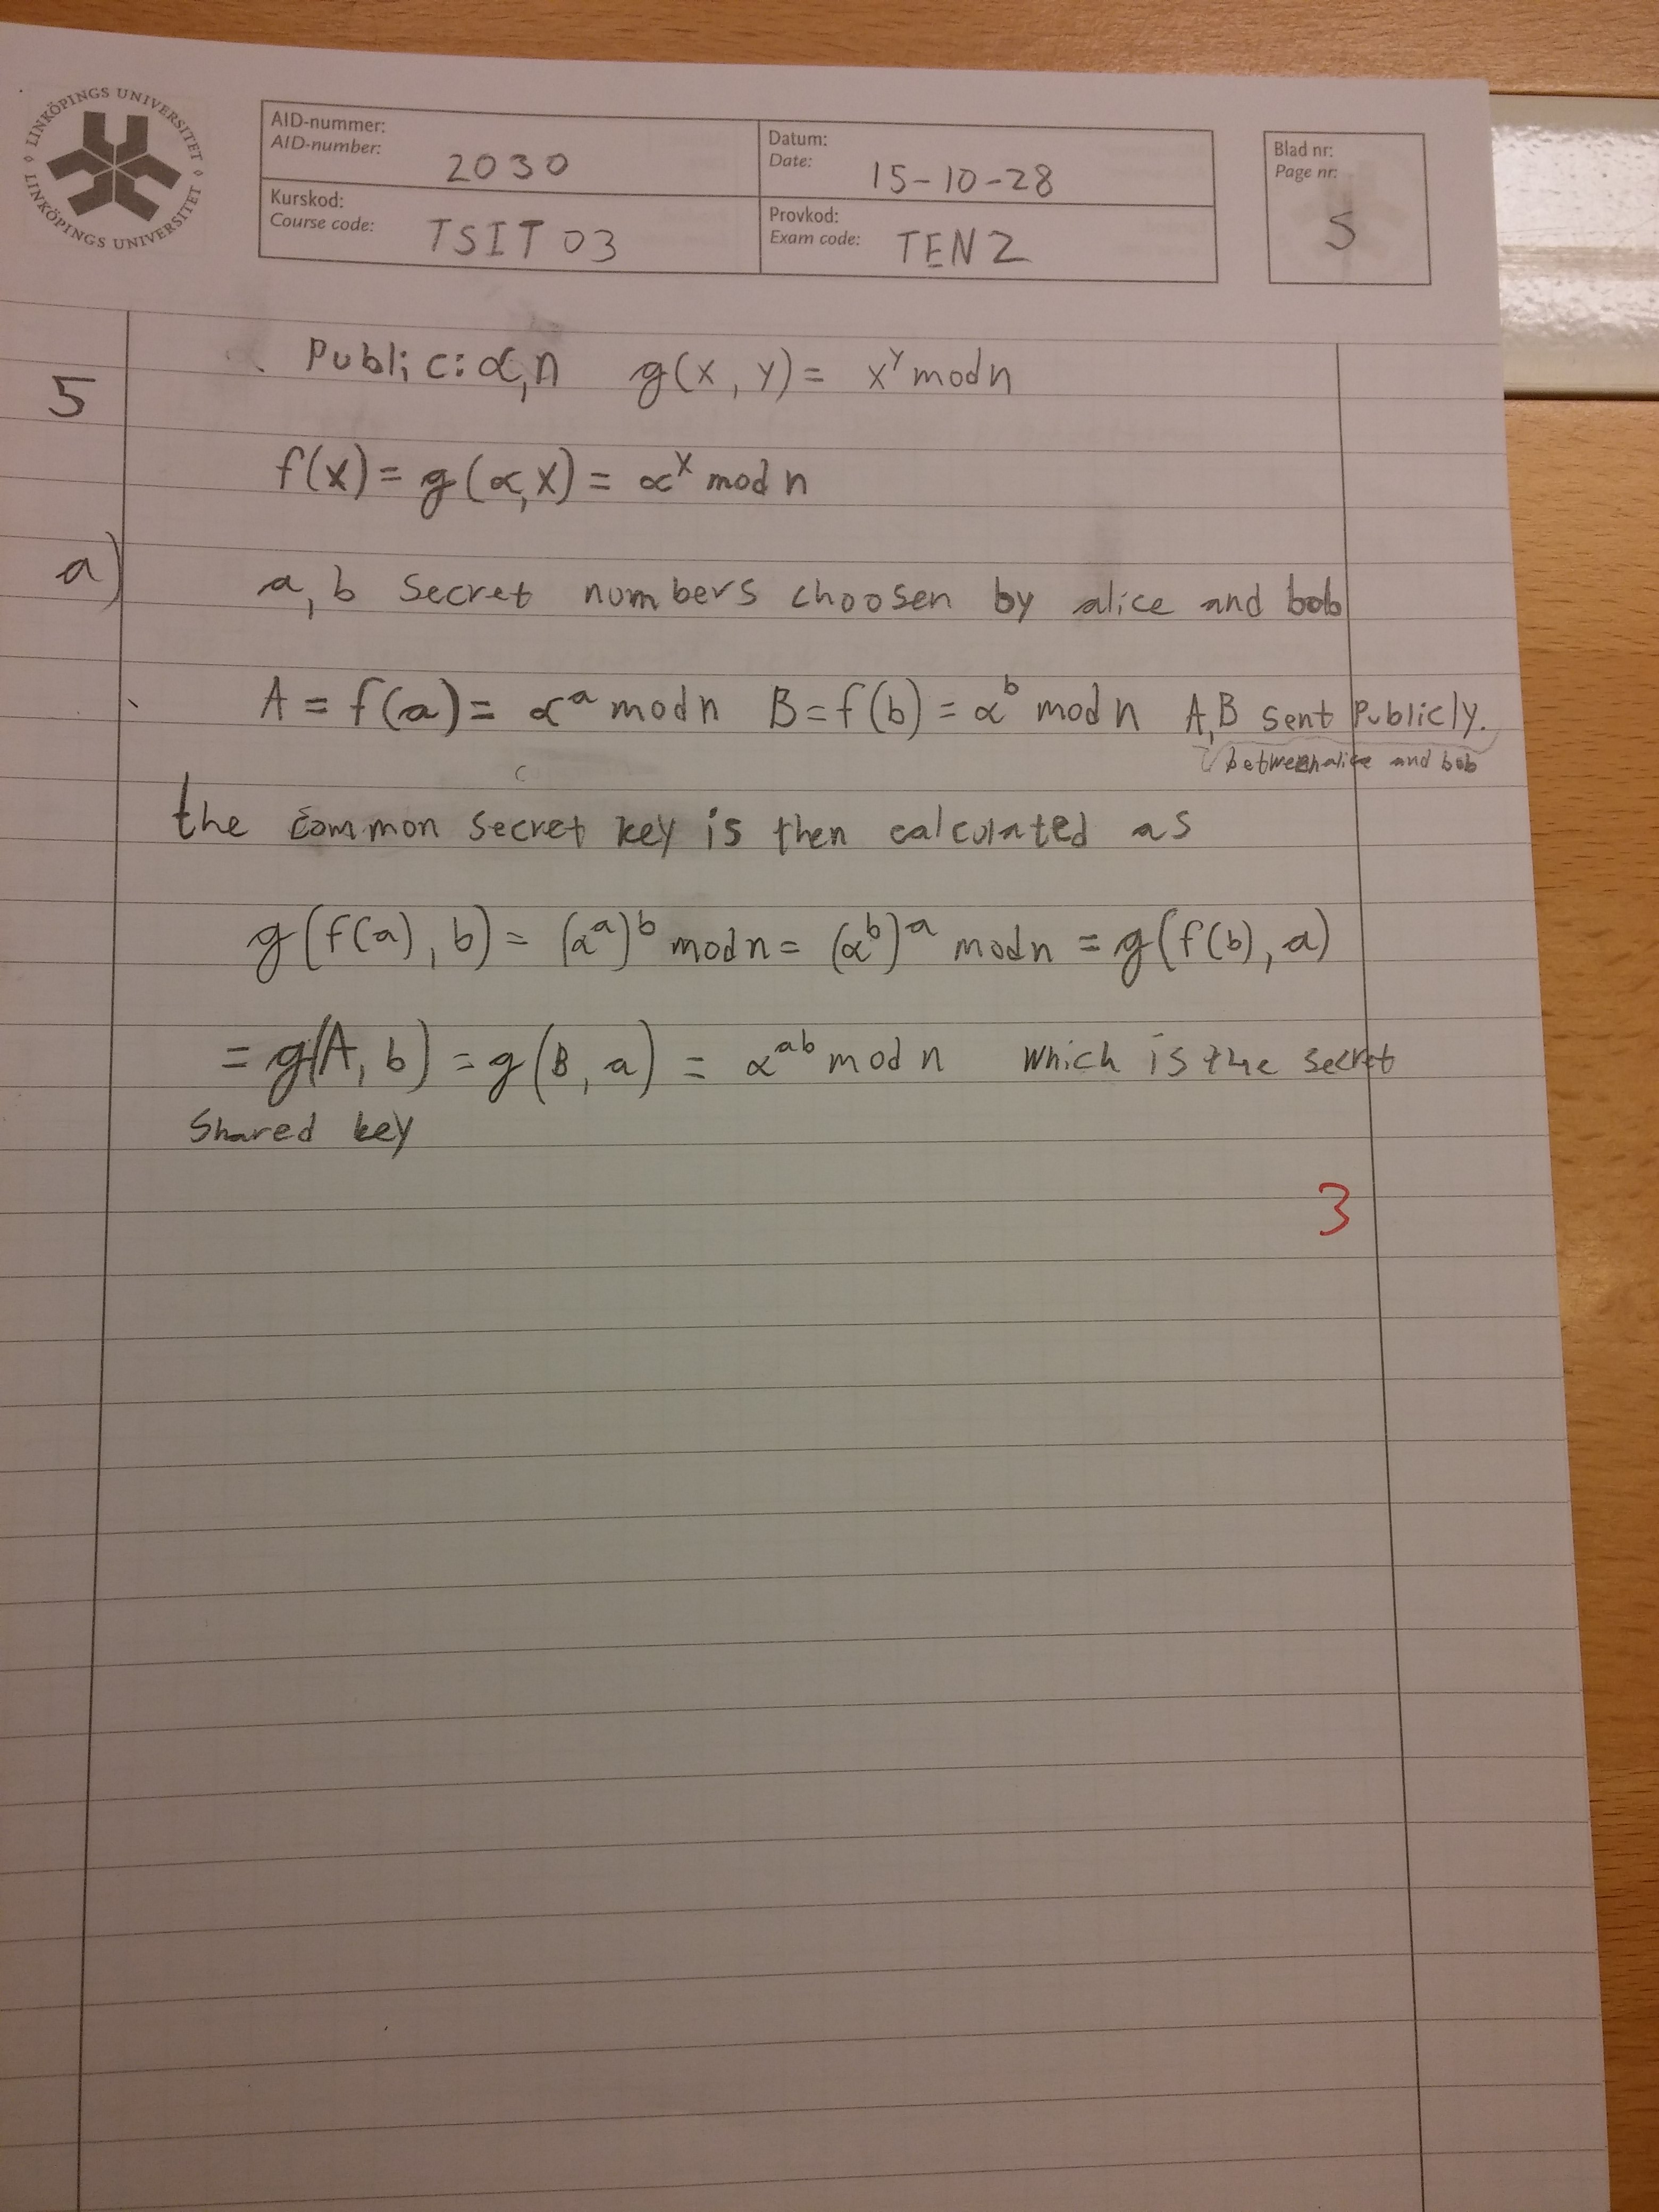 LINKÖPINGS UNIVERSITET ◊ LINKÖPINGS UNIVERSITET ◊
AID-nummer:
AID-number:
2030
Datum:
Date:
15-10-28
Blad nr:
Page nr:
5
Kurskod:
Course code:
TSIT 03
Provkod:
Exam code:
TEN 2
5
Public: α, n g(x, y) = x^y mod n
f(x) = g(α, x) = α^x mod n
a)
a, b secret numbers choosen by alice and bob
A = f(a) = α^a mod n B = f(b) = α^b mod n A, B sent Publicly.
between alice and bob
the common secret key is then calculated as
g(f(a), b) = (α^a)^b mod n = (α^b)^a mod n = g(f(b), a)
= g(A, b) = g(B, a) = α^ab mod n which is the secret
shared key
3